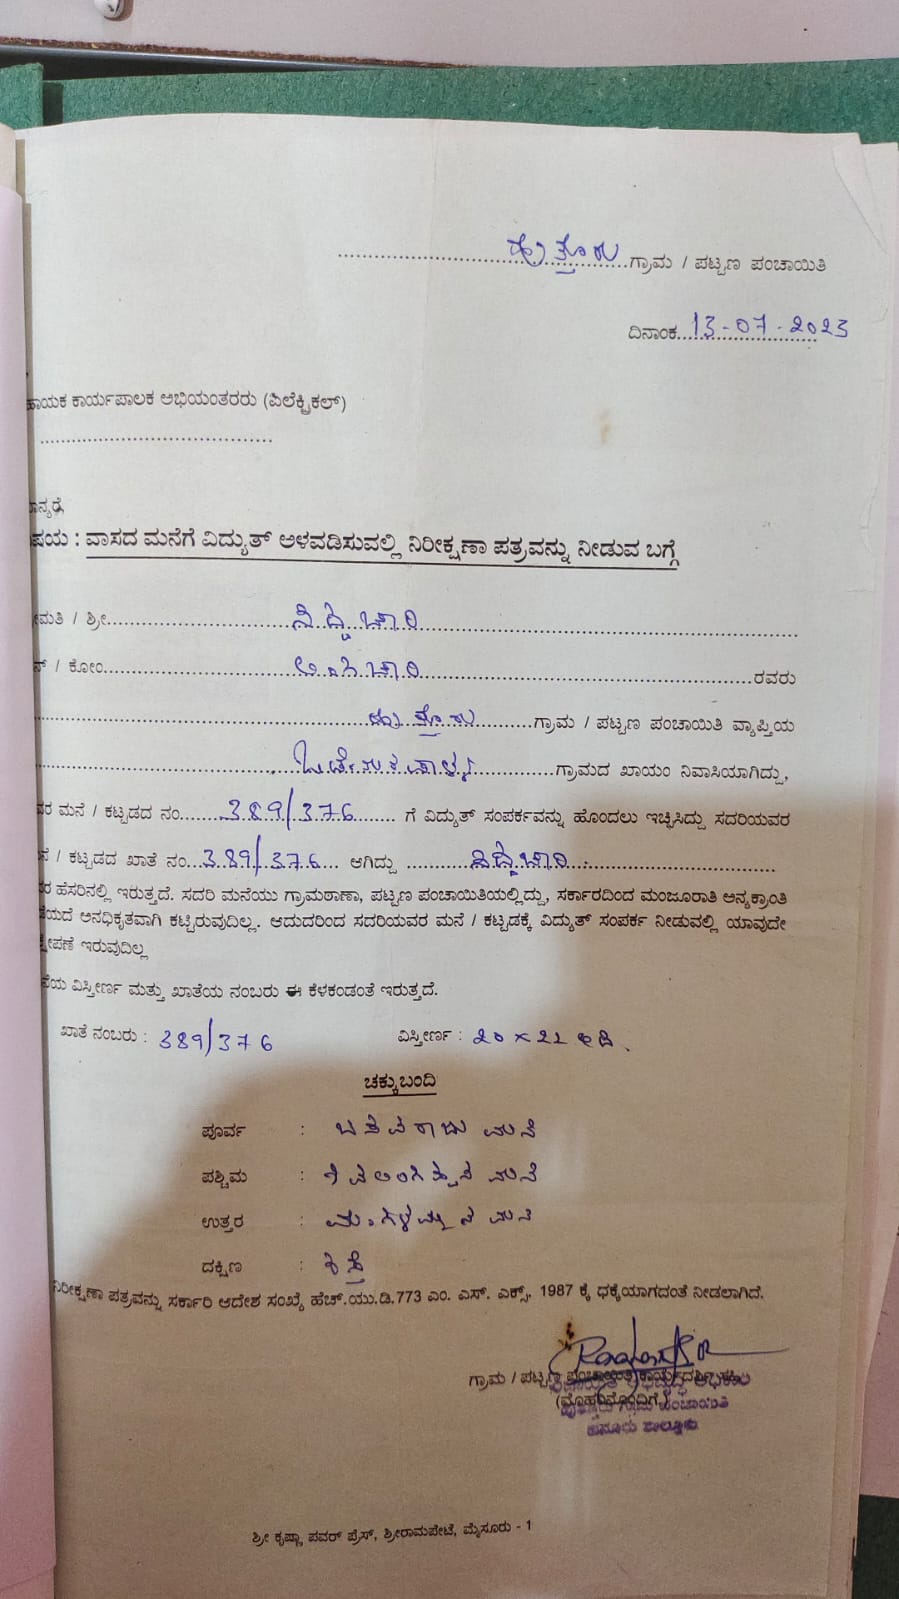 ..........ಗ್ರಾಮ / ಪಟ್ಟಣ ಪಂಚಾಯಿತಿ
ದಿನಾಂಕ...13-07-2023
ಹಾಯಕ ಕಾರ್ಯಪಾಲಕ ಅಭಿಯಂತರರು (ಎಲೆಕ್ಟ್ರಿಕಲ್)
ಾನ್ಯರೆ,
ಷಯ : ವಾಸದ ಮನೆಗೆ ವಿದ್ಯುತ್ ಅಳವಡಿಸುವಲ್ಲಿ ನಿರೀಕ್ಷಣಾ ಪತ್ರವನ್ನು ನೀಡುವ ಬಗ್ಗೆ
ೀಮತಿ / ಶ್ರೀ..........ಸಿದ್ದಚಾರಿ..........
ನ್ / ಕೋಂ....................ರವರು
....................ಗ್ರಾಮ / ಪಟ್ಟಣ ಪಂಚಾಯಿತಿ ವ್ಯಾಪ್ತಿಯ
....................ಗ್ರಾಮದ ಖಾಯಂ ನಿವಾಸಿಯಾಗಿದ್ದು,
ವರ ಮನೆ / ಕಟ್ಟಡದ ನಂ.......389/376....... ಗೆ ವಿದ್ಯುತ್ ಸಂಪರ್ಕವನ್ನು ಹೊಂದಲು ಇಚ್ಛಿಸಿದ್ದು ಸದರಿಯವರ
ನೆ / ಕಟ್ಟಡದ ಖಾತೆ ನಂ...389/376... ಆಗಿದ್ದು ..........ಸಿದ್ದಚಾರಿ......
ರ ಹೆಸರಿನಲ್ಲಿ ಇರುತ್ತದೆ. ಸದರಿ ಮನೆಯು ಗ್ರಾಮಠಾಣಾ, ಪಟ್ಟಣ ಪಂಚಾಯಿತಿಯಲ್ಲಿದ್ದು, ಸರ್ಕಾರದಿಂದ ಮಂಜೂರಾತಿ ಅನ್ಯಕ್ರಾಂತಿ
ಯದೆ ಅನಧಿಕೃತವಾಗಿ ಕಟ್ಟಿರುವುದಿಲ್ಲ. ಆದುದರಿಂದ ಸದರಿಯವರ ಮನೆ / ಕಟ್ಟಡಕ್ಕೆ ವಿದ್ಯುತ್ ಸಂಪರ್ಕ ನೀಡುವಲ್ಲಿ ಯಾವುದೇ
ಕ್ಷೇಪಣೆ ಇರುವುದಿಲ್ಲ
ನೆಯ ವಿಸ್ತೀರ್ಣ ಮತ್ತು ಖಾತೆಯ ನಂಬರು ಈ ಕೆಳಕಂಡಂತೆ ಇರುತ್ತದೆ.
ಖಾತೆ ನಂಬರು : 389/376 ವಿಸ್ತೀರ್ಣ : 20 × 22 ಅಡಿ.
ಚಕ್ಕುಬಂದಿ
ಪೂರ್ವ : ಬಸವರಾಜು ಮನೆ
ಪಶ್ಚಿಮ : ಮನೆ
ಉತ್ತರ : ಮಂಗಳಮ್ಮನ ಮನೆ
ದಕ್ಷಿಣ : ರಸ್ತೆ
ನಿರೀಕ್ಷಣಾ ಪತ್ರವನ್ನು ಸರ್ಕಾರಿ ಆದೇಶ ಸಂಖ್ಯೆ ಹೆಚ್.ಯು.ಡಿ.773 ಎಂ. ಎಸ್. ಎಕ್ಸ್. 1987 ಕ್ಕೆ ಧಕ್ಕೆಯಾಗದಂತೆ ನೀಡಲಾಗಿದೆ.
ಗ್ರಾಮ / ಪಟ್ಟಣ ಪಂಚಾಯಿತಿ ಕಾರ್ಯದರ್ಶಿ
(ಮೊಹರಿನೊಂದಿಗೆ)
ಶ್ರೀ ಕೃಷ್ಣಾ ಪವರ್ ಪ್ರೆಸ್, ಶ್ರೀರಾಮಪೇಟೆ, ಮೈಸೂರು - 1